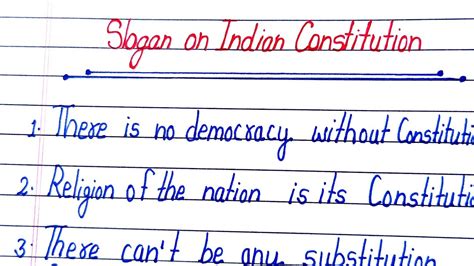 Slogan on Indian Constitution
1. There is no democracy without Constituti
2. Religion of the nation is its Constitutio
3. There can't be any substitution